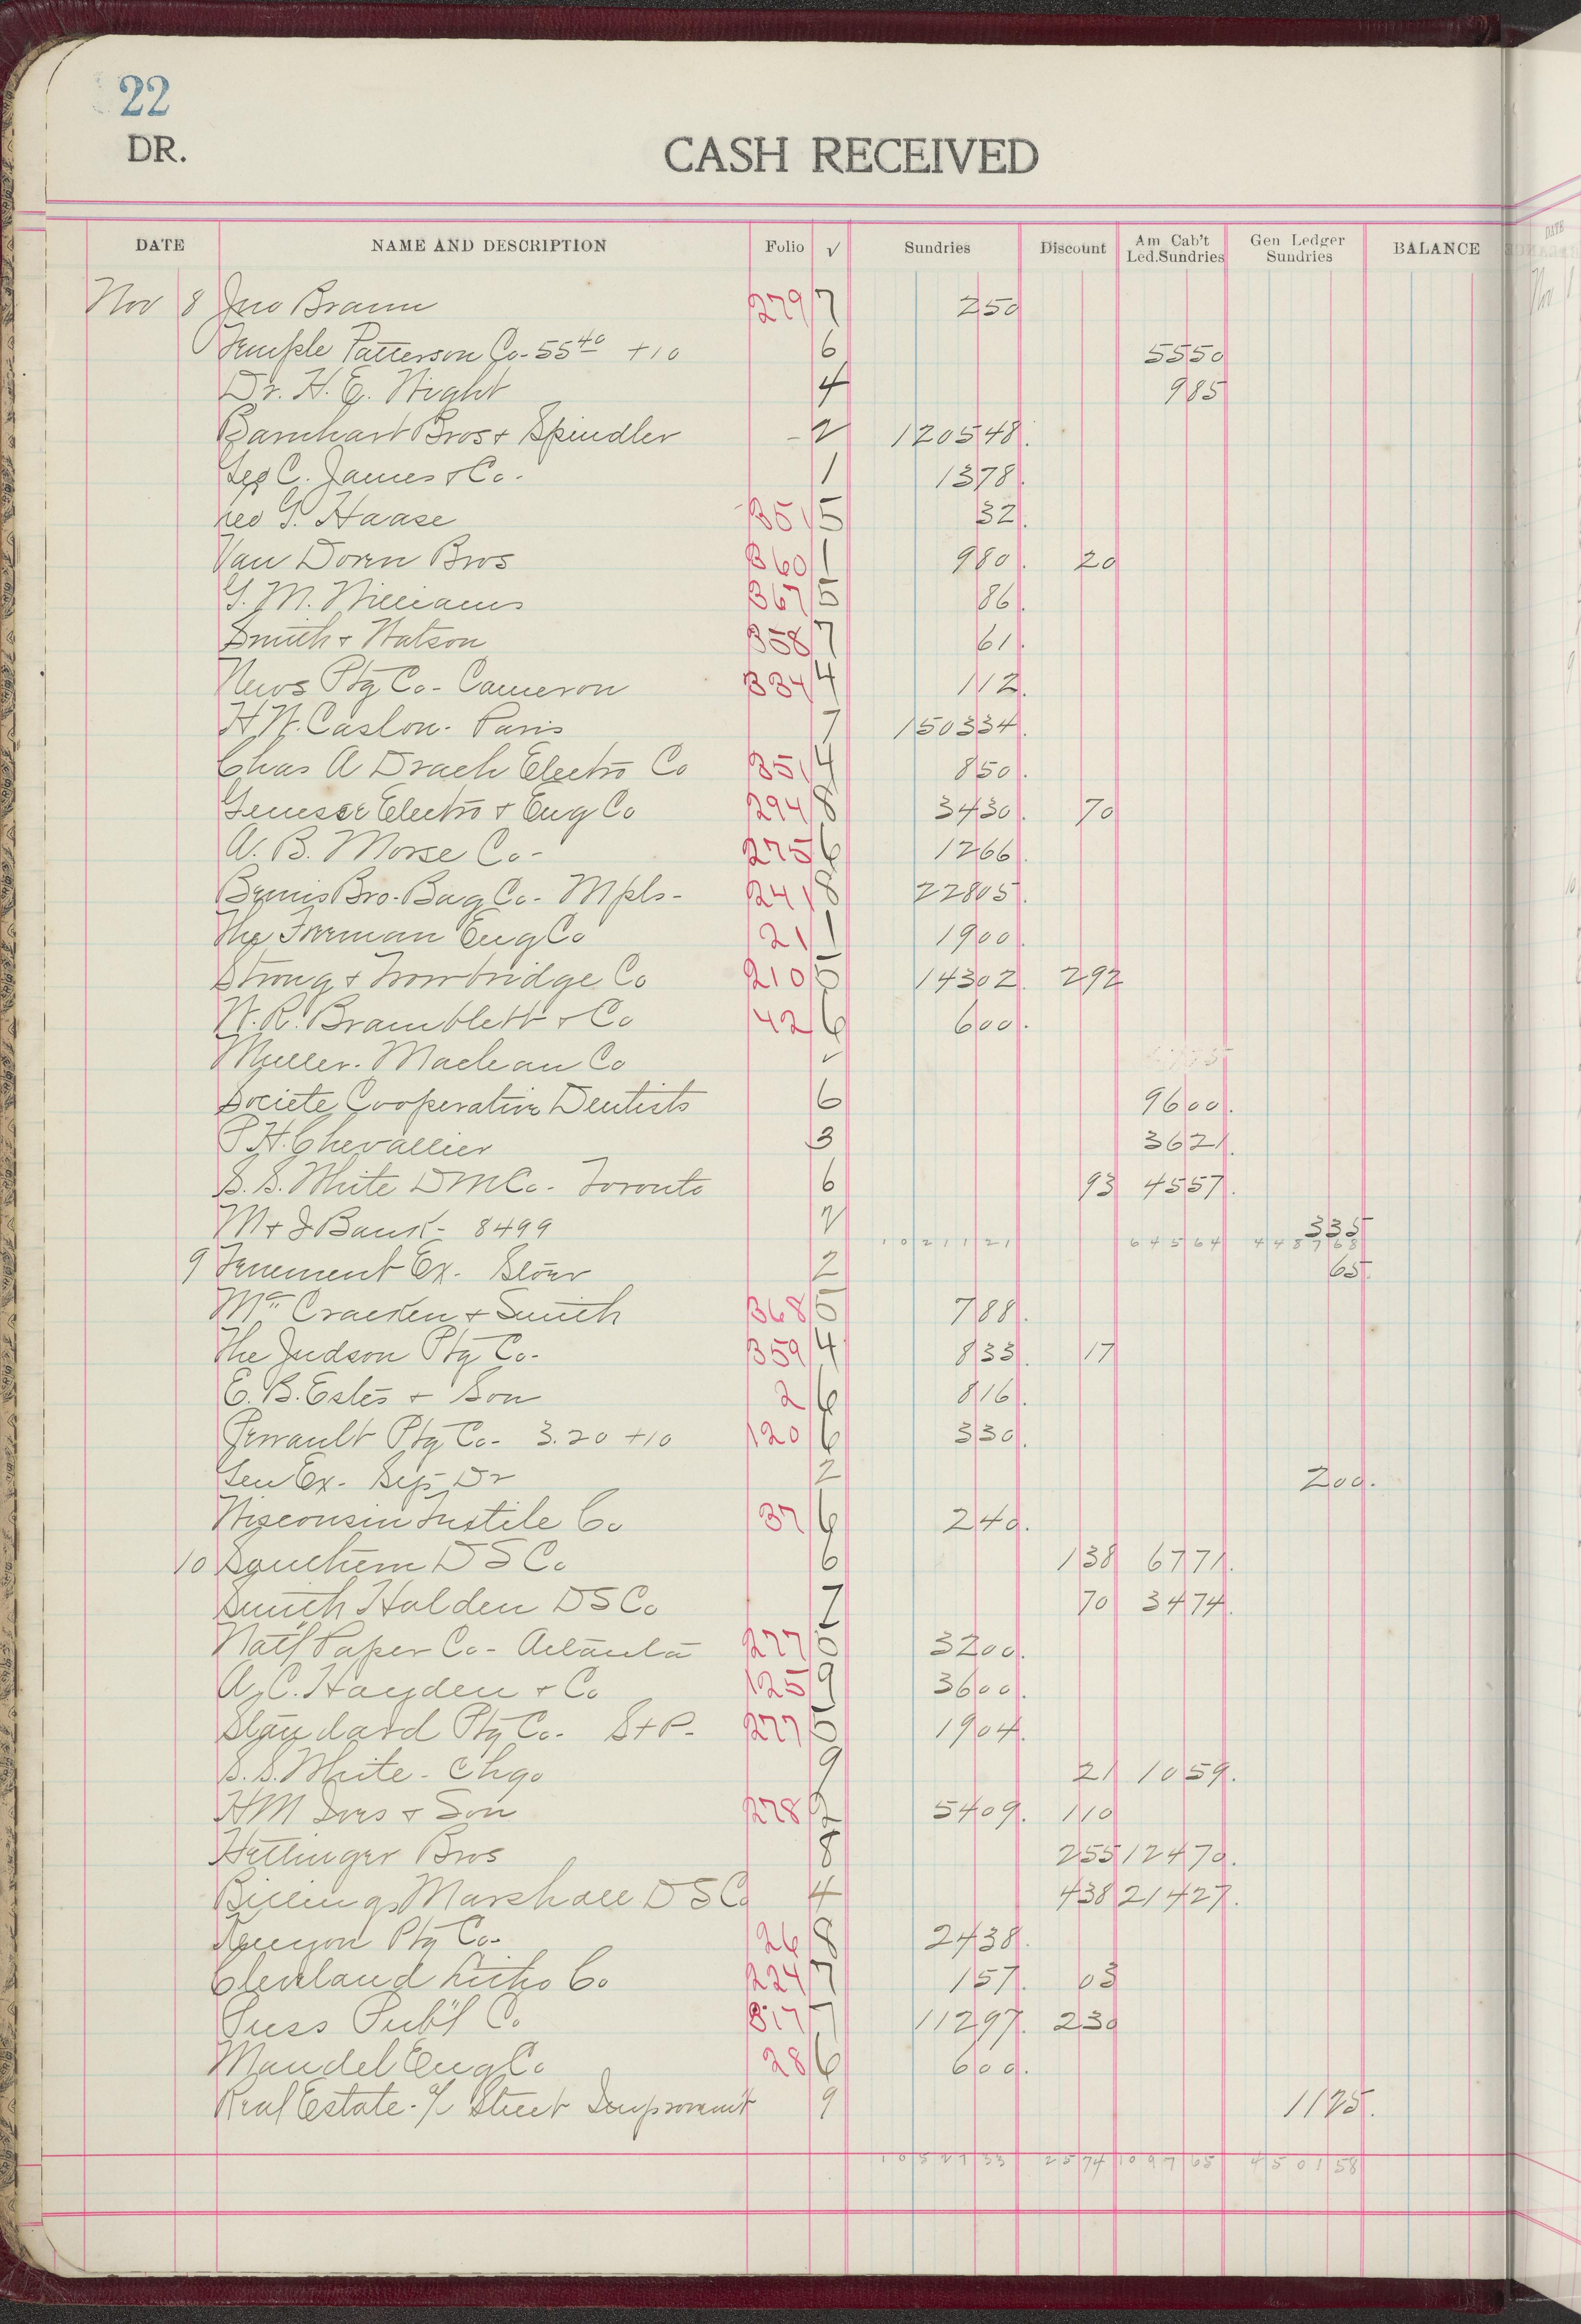 22
DR.
CASH RECEIVED
DATE NAME AND DESCRIPTION Folio √ Sundries Discount Am Cab't Led. Sundries Gen Ledger Sundries BALANCE
Nov 8 Jno Braun 279 7 250
Temple Patterson Co - 55 40 + 10 6 5550
Dr. H. E. Wight 4 985
Barnhart Bros + Spindler - 2 120548.
Geo C. James + Co. 1 1378.
Leo G. Haase 351 5 32.
Van Dorn Bros 360 1 980. 20
G. M. Williams 367 5 86.
Smith + Watson 358 7 61.
News Ptg Co - Cameron 334 4 112.
H W. Caslon. Paris 7 150334.
Chas A Drach Electro Co 351 4 850.
Genesee Electro + Eng Co 294 8 3430. 70
A. B. Morse Co - 275 6 1266.
Bemis Bro. Bag Co. Mpls - 241 8 22805.
The Foreman Eng Co 21 1 1900.
Strong + Trowbridge Co 210 5 14302. 292
W. R. Bramblett + Co 42 6 600.
Muller. Maclean Co √
Societe Cooperative Dentists 6 9600.
P. H. Chevallier 3 3621.
S. S. White D M Co. Toronto 6 93 4557.
M + I Bank - 8499 2 335
1021121 64564 448768
9 Tenement Ex. 2 65.
Mc Cracken + Smith 368 5 788.
The Judson Ptg Co. 359 4 833. 17
E. B. Estes + Son 2 6 816.
Perrault Ptg Co - 3.20 + 10 120 6 330.
Gen Ex. Dr 2 200.
Wisconsin Textile Co 37 6 240.
10 Southern D S Co 6 138 6771.
Smith Holden D S Co 7 70 3474.
Nat'l Paper Co - Atlanta 277 5 3200.
A. C. Hayden + Co 125 9 3600.
Standard Ptg Co. St P. 277 5 1904.
S. S. White - Chgo 9 21 1059.
H M Ives + Son 278 2 5409. 110
Hettinger Bros 8 255 12470.
Billings Marshall D S Co 4 438 21427.
Kenyon Ptg Co. 26 8 2438.
Cleveland Litho Co 224 7 157. 03
Press Pub'l Co. 317 7 11297. 230
Mandel Eng Co 28 6 600.
Real Estate - a/c Street Improvement 9 1125.
1052733 2574 109765 450158